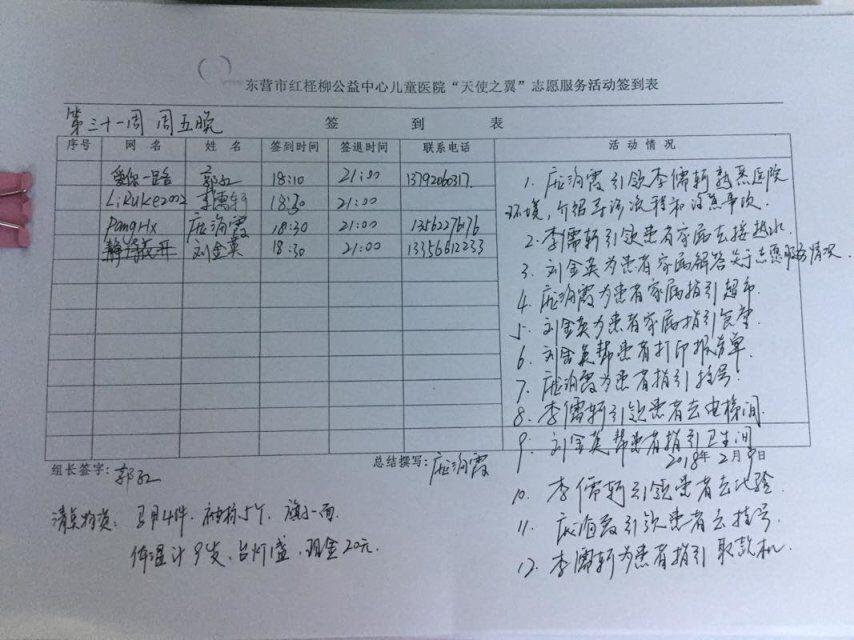 东营市红柽柳公益中心儿童医院“天使之翼”志愿服务活动签到表
第三十一周 周五晚
签 到 表
序号 网名 姓名 签到时间 签退时间 联系电话 活动情况
郭红 18:10 21:00 13792060317.
LiRuke2002 李儒轩 18:30 21:00
PangHx 庞海霞 18:30 21:00 1356227676
刘金英 18:30 21:00 13356612233
1. 庞海霞引领李儒轩熟悉医院
环境,介绍导诊流程和注意事项.
2. 李儒轩引领患者家属去接热水
3. 刘金英为患者家属解答关于志愿服务情况.
4. 庞海霞为患者家属指引超市.
5. 刘金英为患者家属指引食堂.
6. 刘金英帮患者打印报告单.
7. 庞海霞为患者指引挂号.
8. 李儒轩引领患者去电梯间.
9. 刘金英帮患者指引卫生间
组长签字: 郭红 总结撰写: 庞海霞 2018年2月9日
10. 李儒轩引领患者去化验
11. 庞海霞引领患者去挂号.
12. 李儒轩为患者指引取款机.
清点物资: 马甲4件. 袖标5个. 旗一面.
体温计9支、台灯1盏, 现金20元.